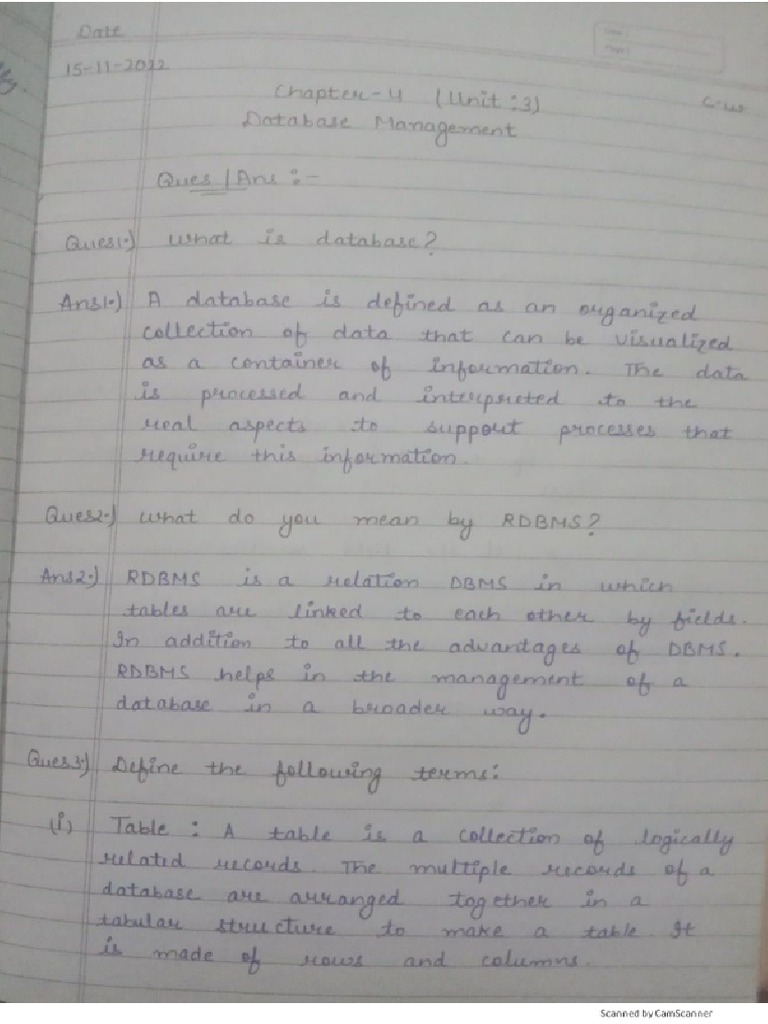 Date
15-11-2022
Chapter-4 (Unit:3)
C.W
Database Management
Ques/Ans :-
Ques1.) What is database?
Ans1.) A database is defined as an organized
collection of data that can be visualized
as a container of information. The data
is processed and interpreted to the
real aspects to support processes that
require this information.
Ques2.) What do you mean by RDBMS?
Ans2.) RDBMS is a relation DBMS in which
tables are linked to each other by fields.
In addition to all the advantages of DBMS.
RDBMS helps in the management of a
database in a broader way.
Ques3.) Define the following terms:
(i) Table : A table is a collection of logically
related records. The multiple records of a
database are arranged together in a
tabular structure to make a table. It
is made of rows and columns.
Scanned by CamScanner